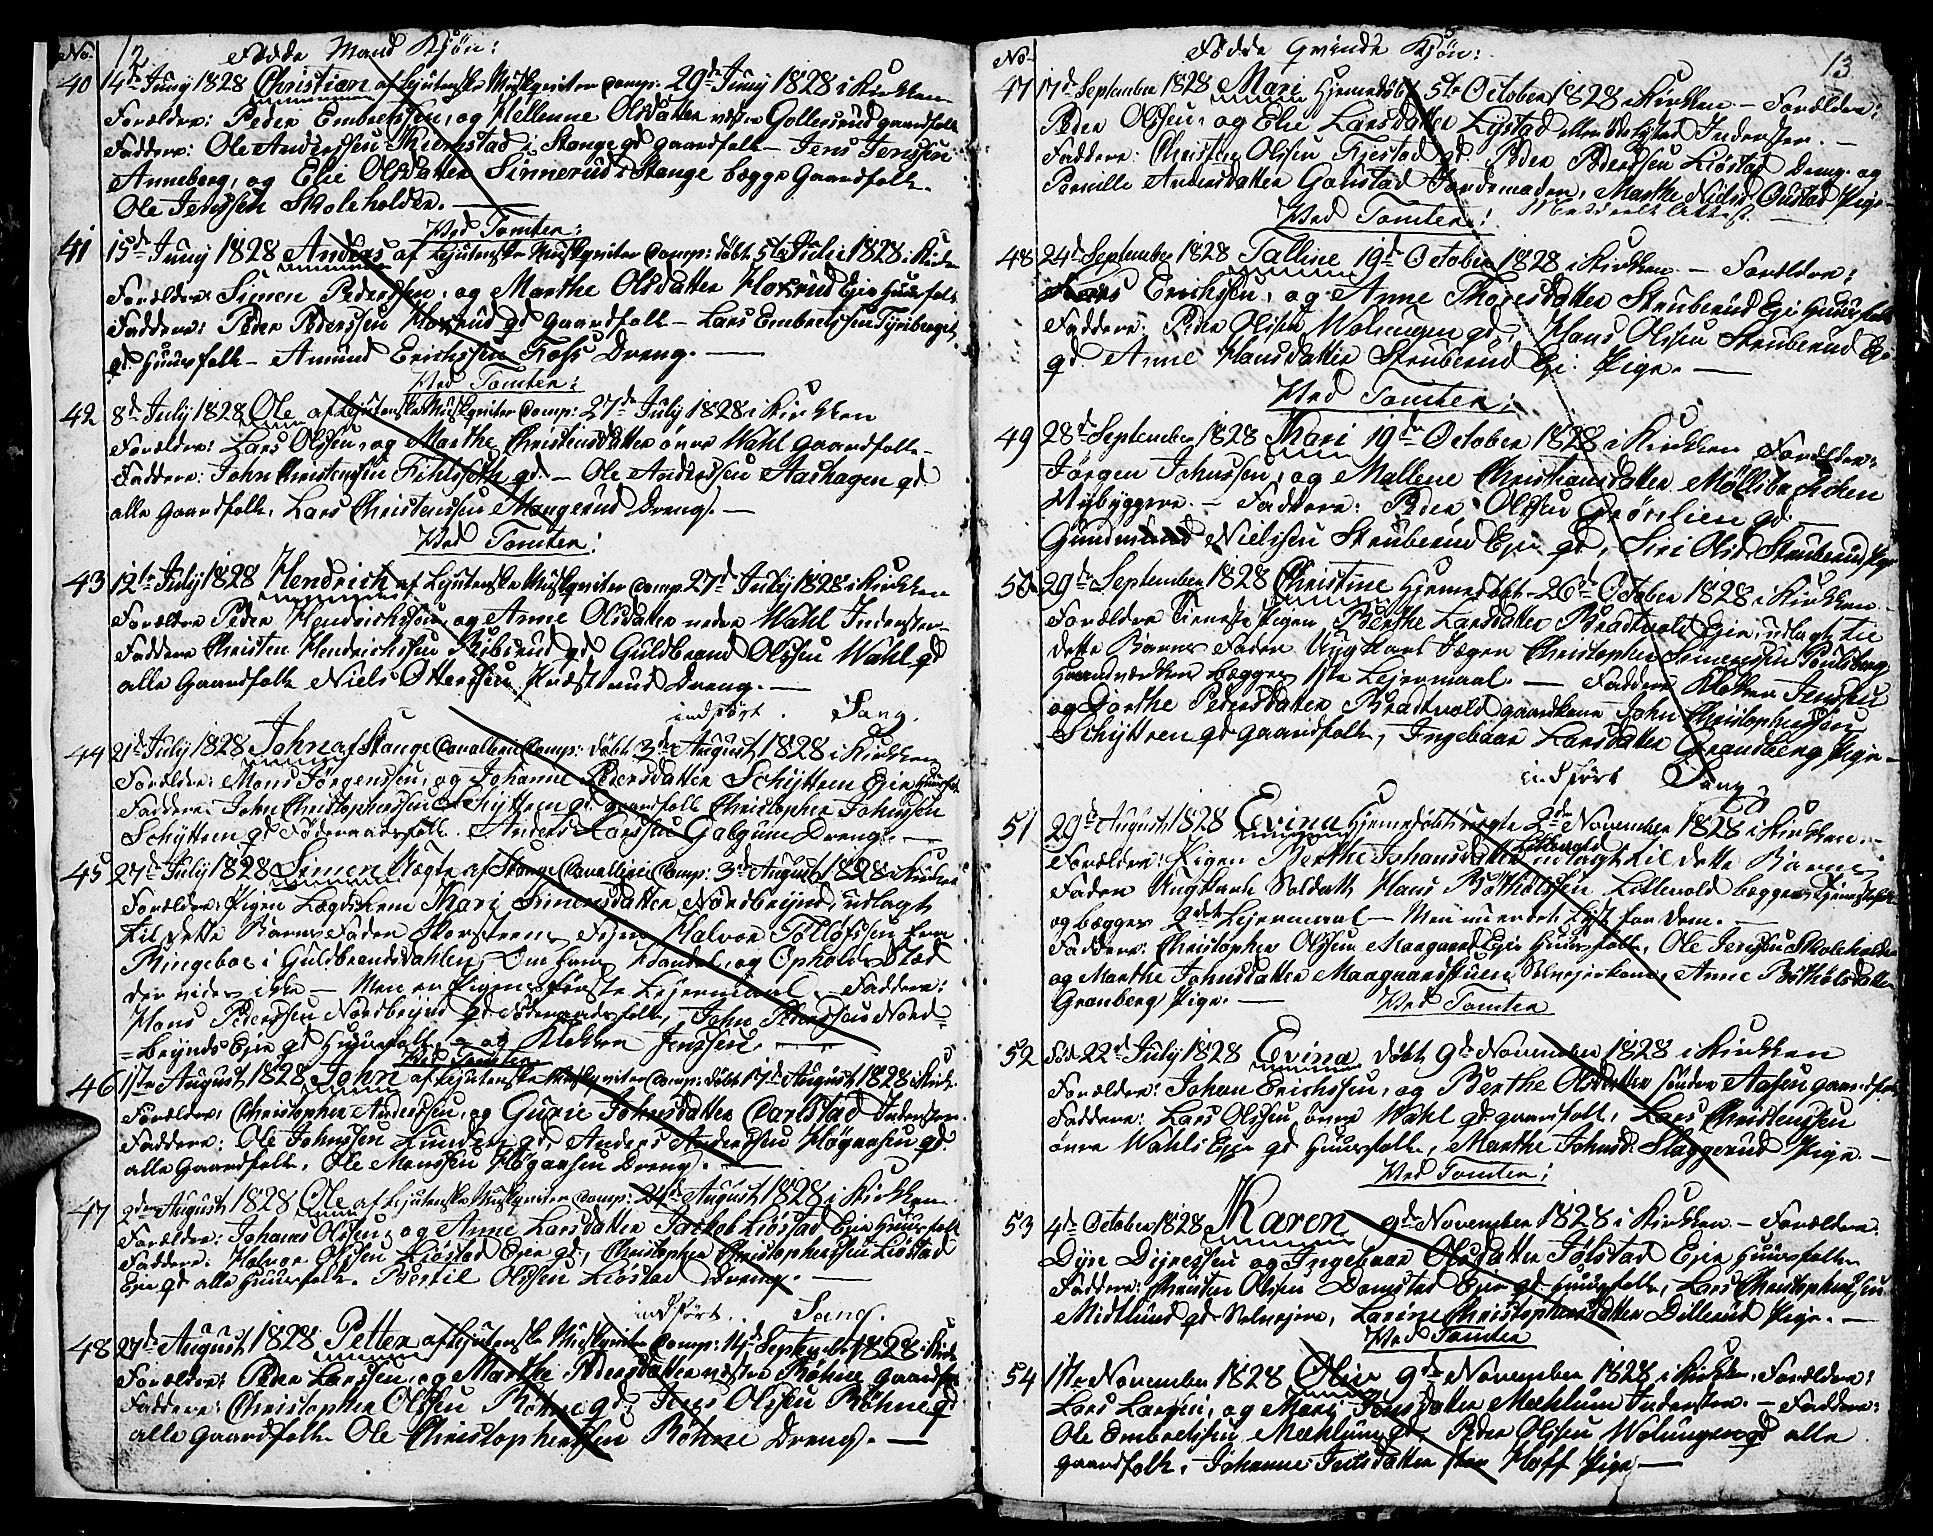 No. 12 Fødde Mand Kjøn:
40 14de Juny 1828 Christian af Lyutenske Musqveter Comp: 29de Juny 1828 i Kirken
Forældre: Peder Embretssen, og Hellenne Olsdatter Gollerud gaardfolk
Faddere: Ole Anderssen i Stange gd gaardfolk – Jens Jenssen
Anneberg, og Elie Olsdatter Sinnerud i Stange begge Gaardfolk.
Ole Jenssen Skoleholder. —
Ved Tomter:
41 15de Juny 1828 Andreas af Lyutenske Musqveter Comp: døbt 5te Julii 1828 i Kirken
Forældre: Simen Pederssen, og Marthe Olsdatter Hoxrud Eje Huusfolk
Faddere: Peder Pederssen Hoxrud gd Gaardfolk – Lars Embretssen
gd Huusfolk – Amund Erichssen Foss Dreng. —
Ved Tomter:
42 8de July 1828 Ole af Lyutenske Musqveter Comp: 27de July 1828 i Kirken
Forældre: Lars Olssen, og Marthe Christensdatter øvre Wahl Gaardfolk –
Faddere: John Christenssen gd – Ole Anderssen Stashagen gd
alle Gaardfolk, Lars Christenssen Mangerud Dreng. —
Ved Tomter:
43 12te July 1828 Hendrich af Lyutenske Musqveter Comp. 27de July 1828 i Kirken
Forældre Peder Hendrichssen, og Anne Olsdatter nedre Wahl Inderster
Faddere Christen Hendrichssen gd Guldbrand Olssen Wahl gd
alle Gaardfolk Niels Otterssen Præstrud Dreng. —
indført. Sang.
44 21de July 1828 John af Stange Cavalleri Comp: døbt 3de August 1828 i Kirken
Forældre: Mons Jørgenssen, og Johanne Pedersdatter Schyttern Eje Huusfolk
Faddere: John Christopherssen Schyttern gd gaardfolk Christopher Johnssen
Schyttern gd Føderaadsfolk. Anders Larssen Galgum Dreng. —
45 27de July 1828 Simen Uægte af Stange Cavalleri Comp: 3de August 1828 i Kirken
Forældre: Pigen Mari Simensdatter Nordbrynd, udlagt
til dette Barns Fader Skorsteens Fejer Halvor Tolløfssen fra
Ringeboe i Guldbrandsdahlen, Om hans og Opholds Stæd
der vides ikke – Men er Pigens første Lejermaal. – Faddere:
Hans Pederssen Nordbrynd gd Føderaadsfolk, John Pederssen Nord-
brynds Eje gd Huusfolk, og Klokker Jenssen. —
Ved Tomter
46 1ste August 1828 John af Lyutenske Musqveter Comp: døbt 17de August 1828 i Kirk:
Forældre: Christopher Anderssen, og Gurie Johnsdatter Carlstad Inderster.
Faddere: Ole Johnssen Lunden gd, Anders Anderssen Høgarsen gd
alle Gaardfolk, Ole Monssen Høgarsen Dreng. —
47 2den August 1828 Ole af Lyutenske Musqveter Comp: 24de August 1828 i Kirken
Forældre: Johannes Olssen, og Anne Larsdatter Liøstad Eje Huusfolk
Faddere: Halvor Olssen Liøstad Eje gd, Christopher Christopherssen Liøstad
Eje gd alle Huusfolk. Bertil Olssen Liøstad Dreng. —
indført. Sang.
48 27de August 1828 Petter af Lyutenske Musqveter Comp: 14de September 1828 i Kirk:
Forældre: Peder Larssen, og Marthe Pedersdatter Røhne gaardfolk
Faddere: Christopher Olssen Røhne gd, Jens Olssen Røhne gd
alle Gaardfolk. Ole Christopherssen Røhne Dreng. —
No. Fødde Qvinde Kjøn: 13
47 17de September 1828 Mari Hjemedøbt 5te October 1828 i Kirken – Forældre:
Peder Olssen, og Elie Larsdatter Lystad Inderster. –
Faddere: Christen Olssen gd. Peder Pederssen Liøstad Dreng. og
Pernille Andersdatter Gaustad Jordemoder, Marthe Nielsd. Gustad Pige –
Ved Tomter:
48 24de September 1828 Talline 19de October 1828 i Kirken. – Forældre:
Erichssen, og Anne Thoresdatter Struberud Eje Huusfolk
Faddere: Peder Olssen Wolungen gd, Hans Olssen Struberud Eje
gd Anne Hansdatter Struberud Eje. Pige. —
Ved Tomter:
49 28de September 1828 Mari 19de October 1828 i Kirken Forældre:
Jørgen Johnssen, og Mallene Christiansdatter Møllibachchen
Nybyggere. – Faddere: Peder Olssen Grønlien gd
Gunmund Nielssen Struberud Eje gd, Siri Olsd. Struberud Pige
50 29de September 1828 Christine Hjemedøbt 26de October 1828 i Kirken
Forældre Tieneste Pigen Berthe Larsdatter Bradtvold Eje, udlagt til
dette Barns Fader Rygkart Jæger Christopher Simenssen Poulsberg
Haandværker begges 1ste Lejermaal. – Faddere Klokker Jenssen
og Dorthe Pedersdatter Bradtvold gaardkone John Christopherssen
Schyttern gd gaardfolk, Ingebaar Larsdatter Grandberg Pige –
indført Sang
51 29de August 1828 Evina Hjemedøbt uægte 2de November 1828 i Kirken. –
Forældre: Pigen Berthe Johansdatter Lillevold udlagt til dette Barns
Fader Rygkart Soldatt Hans Bøtholssen Lillevold begge Tjenestefolk
og begges 2det Lejermaal – Men nu er det Lyst for dem. –
Faddere: Christopher Olssen Maagaard Eje Huusfolk, Ole Jenssen Skoleholder
og Marthe Johnsdatter Maagaardstuen Selvejerkone, Anne Bøtholsdatter
Granberg Pige. —
Ved Tomter
52 Fød 22de July 1828 Evina døbt 9de November 1828 i Kirken
Forældre: Johan Erichssen, og Berthe Olsdatter søndre Aasen gaardfolk
Faddere: Lars Olssen øvre Wahl gd gaardfolk, Lars Christenssen
øvre Wahls Eje gd Huusfolk, Marthe Johnsd. Slaggerud Pige. —
Ved Tomter:
53 4de October 1828 Karen 9de November 1828 i Kirken – Forældre:
Dyre Dyressen og Ingebaar Olsdatter Jølstad Eje Huusfolk
Faddere: Christen Olssen Damstad Eje gd Huusfolk, Lars Christopherssen
Midtlund gd Selvejere, Larine Christophersdatter Dillerud Pige. —
Ved Tomter
54 1ste November 1828 Olia 9de November 1828 i Kirken, Forældre:
Lars Larssen, og Mari Jensdatter Mæhlum Inderster. – Faddere:
Ole Embretssen Mæhlum gd, Peder Olssen Wolungen gd alle
gaardfolk, Johanne Hoff Pige —